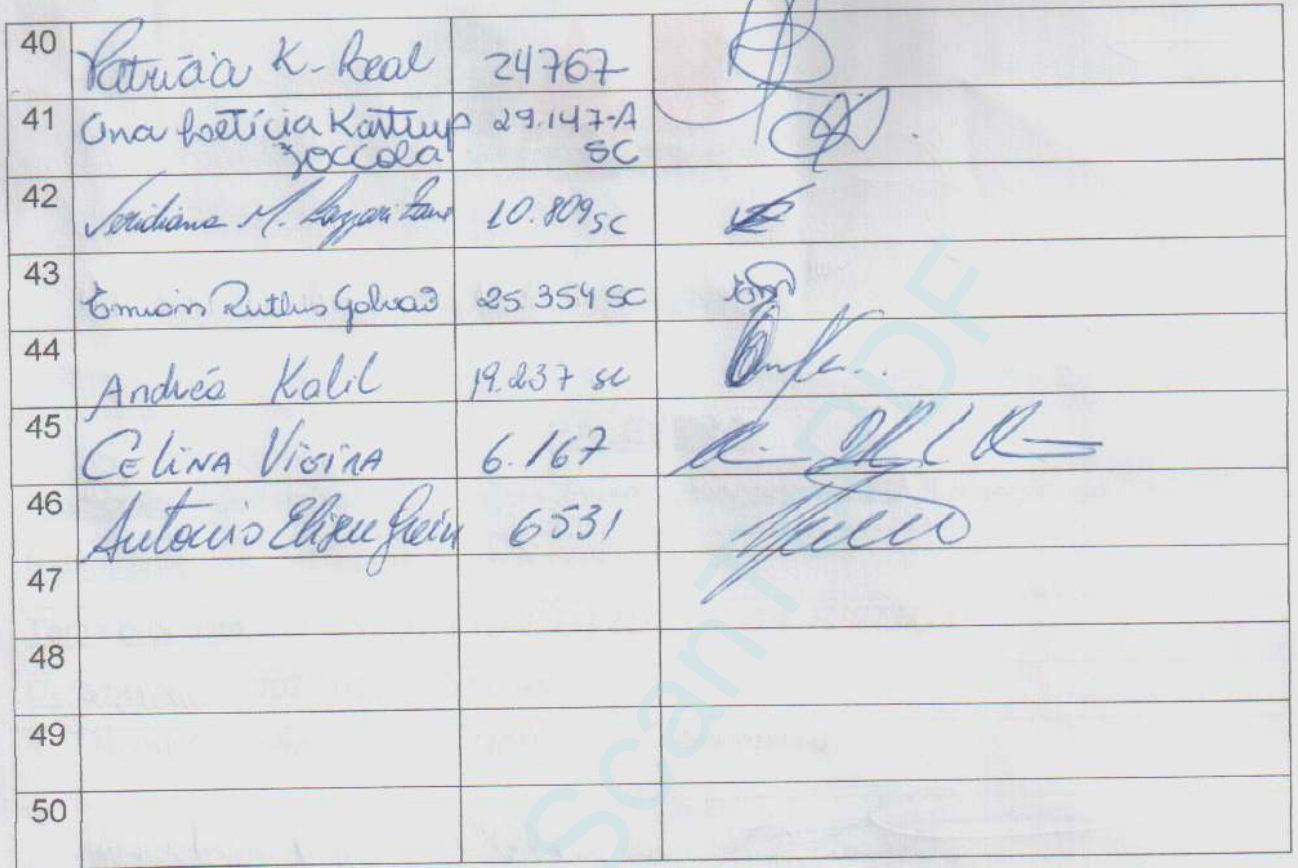 40 Patrícia K. Real 24767
41 Ana Letícia Kastrup 29.147-A
Zoccola SC
42 Veridiana M. Lazzari Zaine 10.809 SC
43 Ruthes Galvão 25.354 SC
44 Andréa Kalil 19.237 SC
45 CELINA VIEIRA 6.167
46 Antonio Eliseu Grein 6531
47
48
49
50
ScanTOPDF